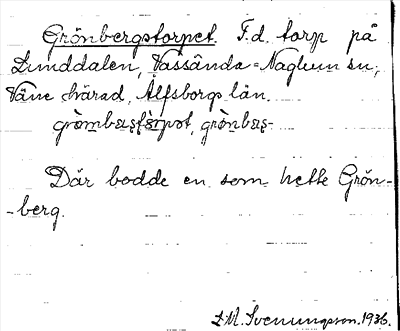 Grönbergstorpet. F.d. torp på
Lunddalen, Vassända-Naglum sn,
Väne härad, Älfsborgs län.
Där bodde en som hette Grön-
-berg.
J.M. Svenungsson. 1936.